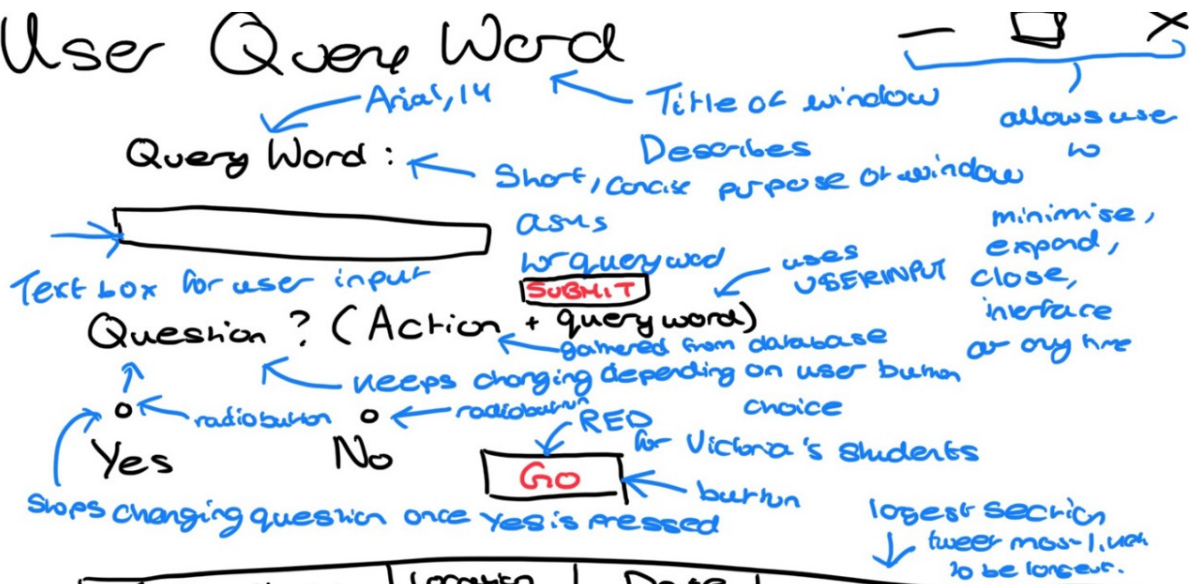 User Query Word
Arial, 14
Title of window
allows user
to
minimise,
expand,
close,
interface
at any time
Query Word :
Describes
Short, concise purpose of window
asks
for query word
Text box for user input
SUBMIT
uses
USERINPUT
Question ? (Action + query word)
gathered from database
keeps changing depending on user button
choice
radio button
radiobutton
RED
for Victoria's students
Yes
No
Go
button
Stops changing question once Yes is pressed
longest section
tweet most likely
to be longest.
Location
Date